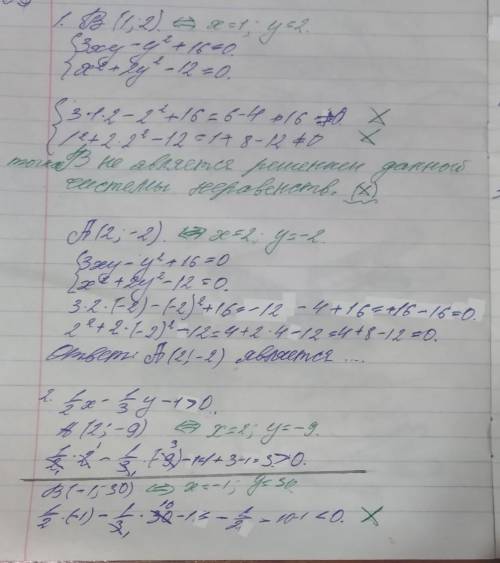 1. B (1; 2). ⇔ x=1; y=2.
{3xy-y²+16=0.
{x²+2y²-12=0.
{3·1·2-2²+16=6-4+16≠0. X
{1²+2·2²-12=1+8-12≠0 X
точка B не является решением данной
системы неравенств. (X)
A(2; -2). ⇔ x=2; y=-2.
{3xy-y²+16=0
{x²+2y²-12=0.
3·2·(-2)-(-2)²+16=-12 -4+16=+16-16=0.
2²+2·(-2)²-12=4+2·4-12=4+8-12=0.
Ответ: A(2; -2) является ...
2. 1/2 x - 1/3 y -1>0.
A(2; -9) ⇔ x=2; y=-9.
1/2·2 - 1/3·(-9)-1=1+3-1=3>0.
B(-1; 30) ⇔ x=-1; y=30.
1/2·(-1) - 1/3·30-1=-1/2-10-1<0. X